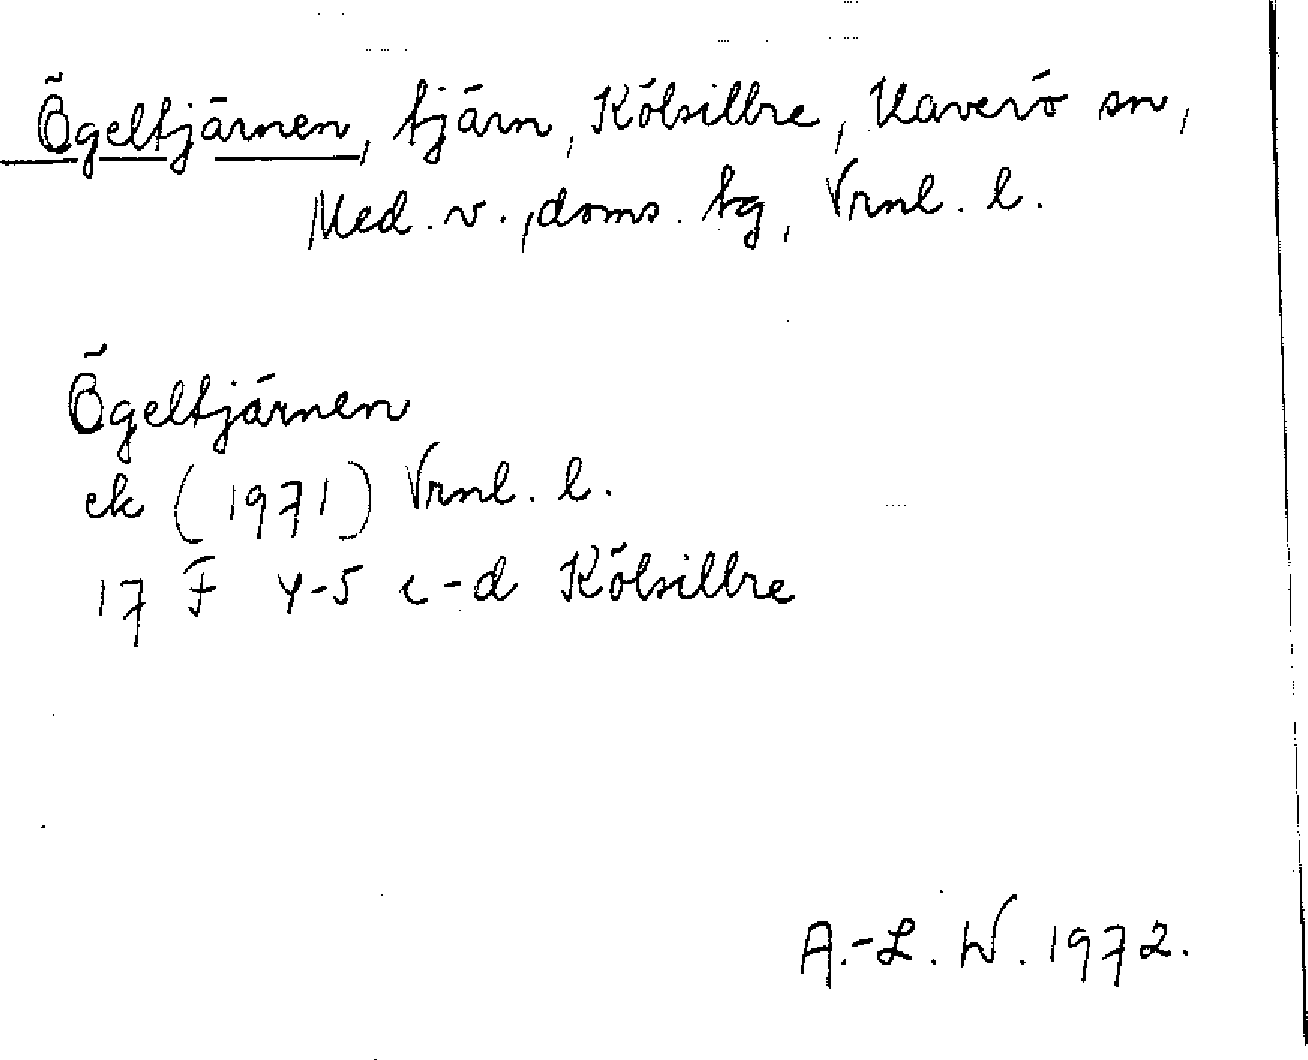 Ögeltjärnen, tjärn, Kölsillre, Haverö sn,
Med. v., doms. tg, Vrnl. l.
Ögeltjärnen
ek (1971) Vrnl. l.
17 F 4-5 c-d Kölsillre
A.-L. W. 1972.